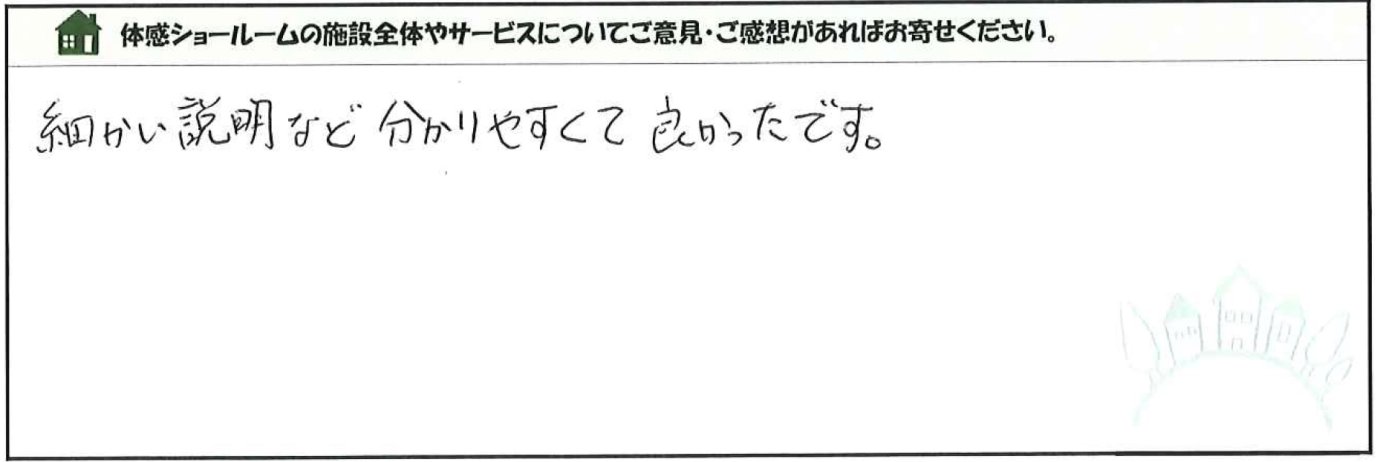 体感ショールームの施設全体やサービスについてご意見・ご感想があればお寄せください。
細かい説明など分かりやすくて良かったです。